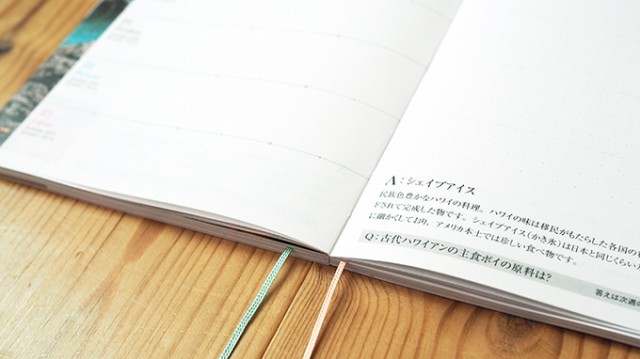 A:シェイブアイス
民族色豊かなハワイの料理。ハワイの味は移民がもたらした各国の
ドされて完成した物です。シェイブアイス(かき氷)は日本と同じくらい
に細かくしており、アメリカ本土では珍しい食べ物です。
Q:古代ハワイアンの主食ポイの原料は?
答えは次週の